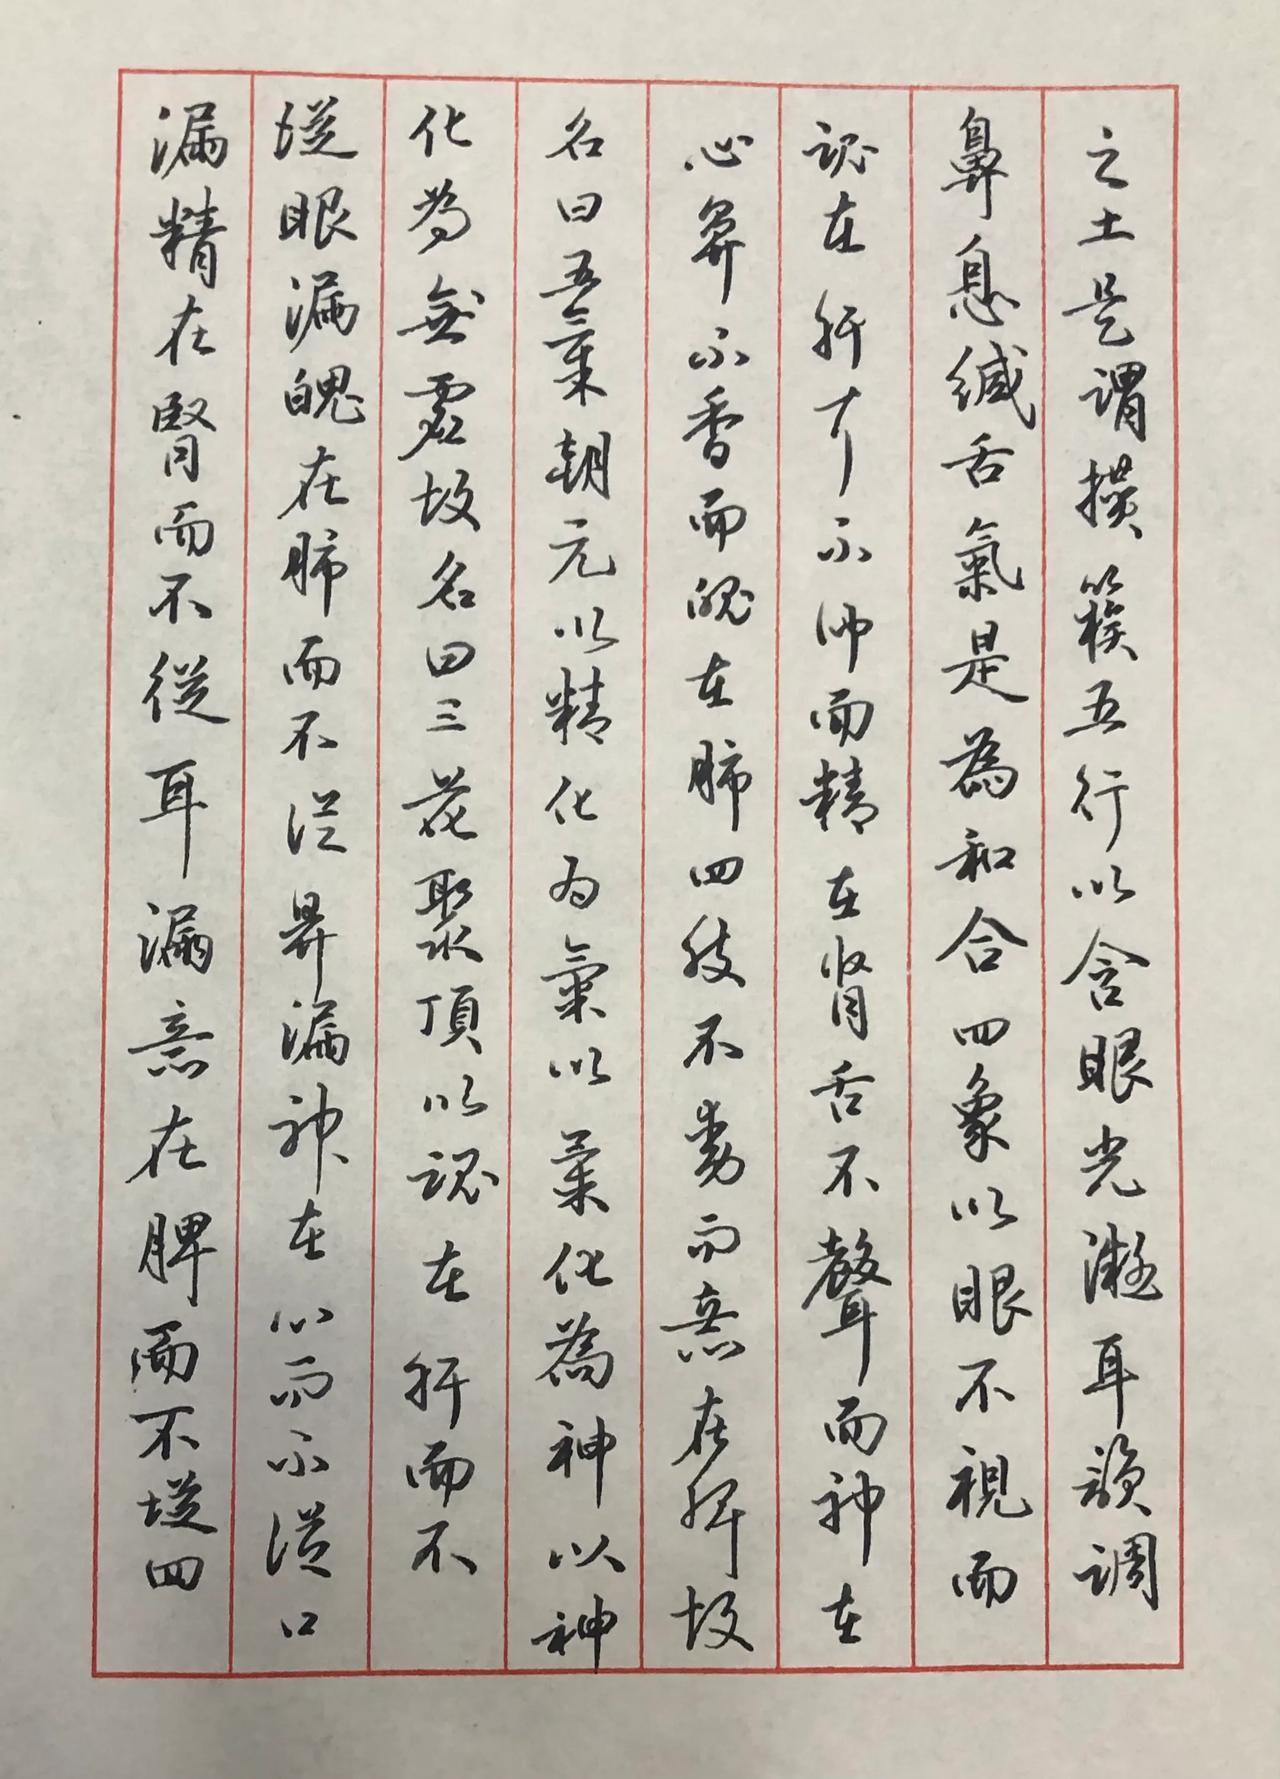 之土是謂攢簇五行以含眼光凝耳韻調
鼻息緘舌氣是為和合四象以眼不視而
魂在肝耳不聞而精在腎舌不聲而神在
心鼻不香而魄在肺四肢不動而意在脾故
名曰五氣朝元以精化為氣以氣化為神以神
化為無虛故名曰三花聚頂以魂在肝而不
從眼漏魄在肺而不從鼻漏神在心而不從口
漏精在腎而不從耳漏意在脾而不從四